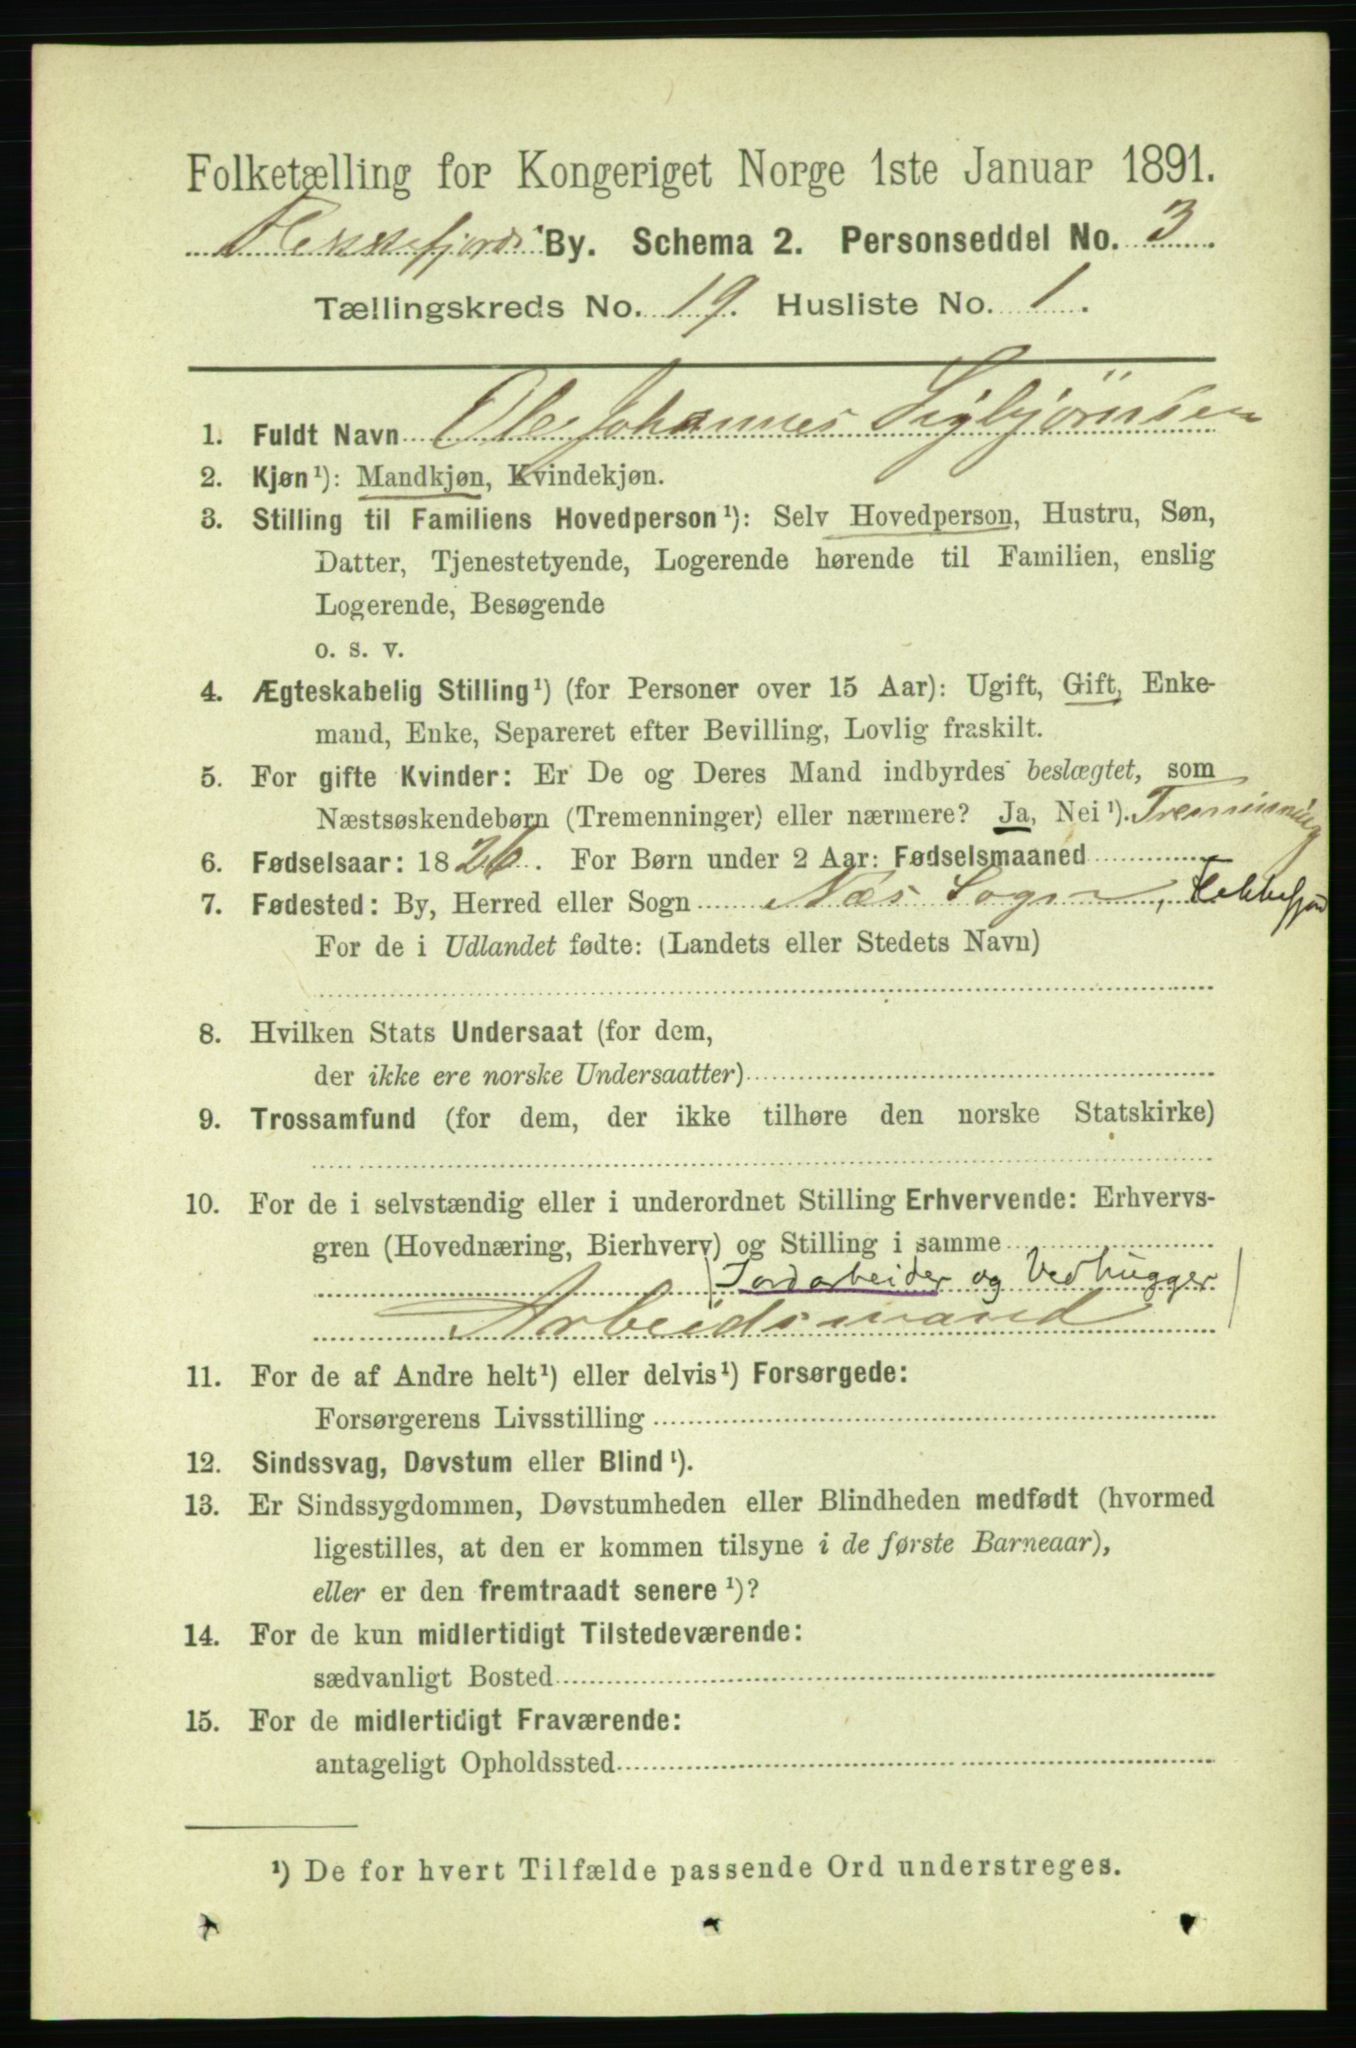 Folketælling for Kongeriget Norge 1ste Januar 1891.
Flekkefjords By. Schema 2. Personseddel No. 3.
Tællingskreds No. 19. Husliste No. 1.
1. Fuldt Navn Ole Johannes Sigbjörnsen
2. Kjøn¹): Mandkjøn, Kvindekjøn.
3. Stilling til Familiens Hovedperson¹): Selv Hovedperson, Hustru, Søn,
Datter, Tjenestetyende, Logerende hørende til Familien, enslig
Logerende, Besøgende
o. s. v.
4. Ægteskabelig Stilling¹) (for Personer over 15 Aar): Ugift, Gift, Enke-
mand, Enke, Separeret efter Bevilling, Lovlig fraskilt.
5. For gifte Kvinder: Er De og Deres Mand indbyrdes beslægtet, som
Næstsøskendebørn (Tremenninger) eller nærmere? Ja, Nei¹). Tremenning
6. Fødselsaar: 1826. For Børn under 2 Aar: Fødselsmaaned
7. Fødested: By, Herred eller Sogn Næs Sogn, Flekkefjord
For de i Udlandet fødte: (Landets eller Stedets Navn)
8. Hvilken Stats Undersaat (for dem,
der ikke ere norske Undersaatter)
9. Trossamfund (for dem, der ikke tilhøre den norske Statskirke)
10. For de i selvstændig eller i underordnet Stilling Erhvervende: Erhvervs-
gren (Hovednæring, Bierhverv) og Stilling i samme
Jordarbeider og Vedhugger
Arbeidsmand
11. For de af Andre helt¹) eller delvis¹) Forsørgede:
Forsørgerens Livsstilling
12. Sindssvag, Døvstum eller Blind¹).
13. Er Sindssygdommen, Døvstumheden eller Blindheden medfødt (hvormed
ligestilles, at den er kommen tilsyne i de første Barneaar),
eller er den fremtraadt senere¹)?
14. For de kun midlertidigt Tilstedeværende:
sædvanligt Bosted
15. For de midlertidigt Fraværende:
antageligt Opholdssted
¹) De for hvert Tilfælde passende Ord understreges.